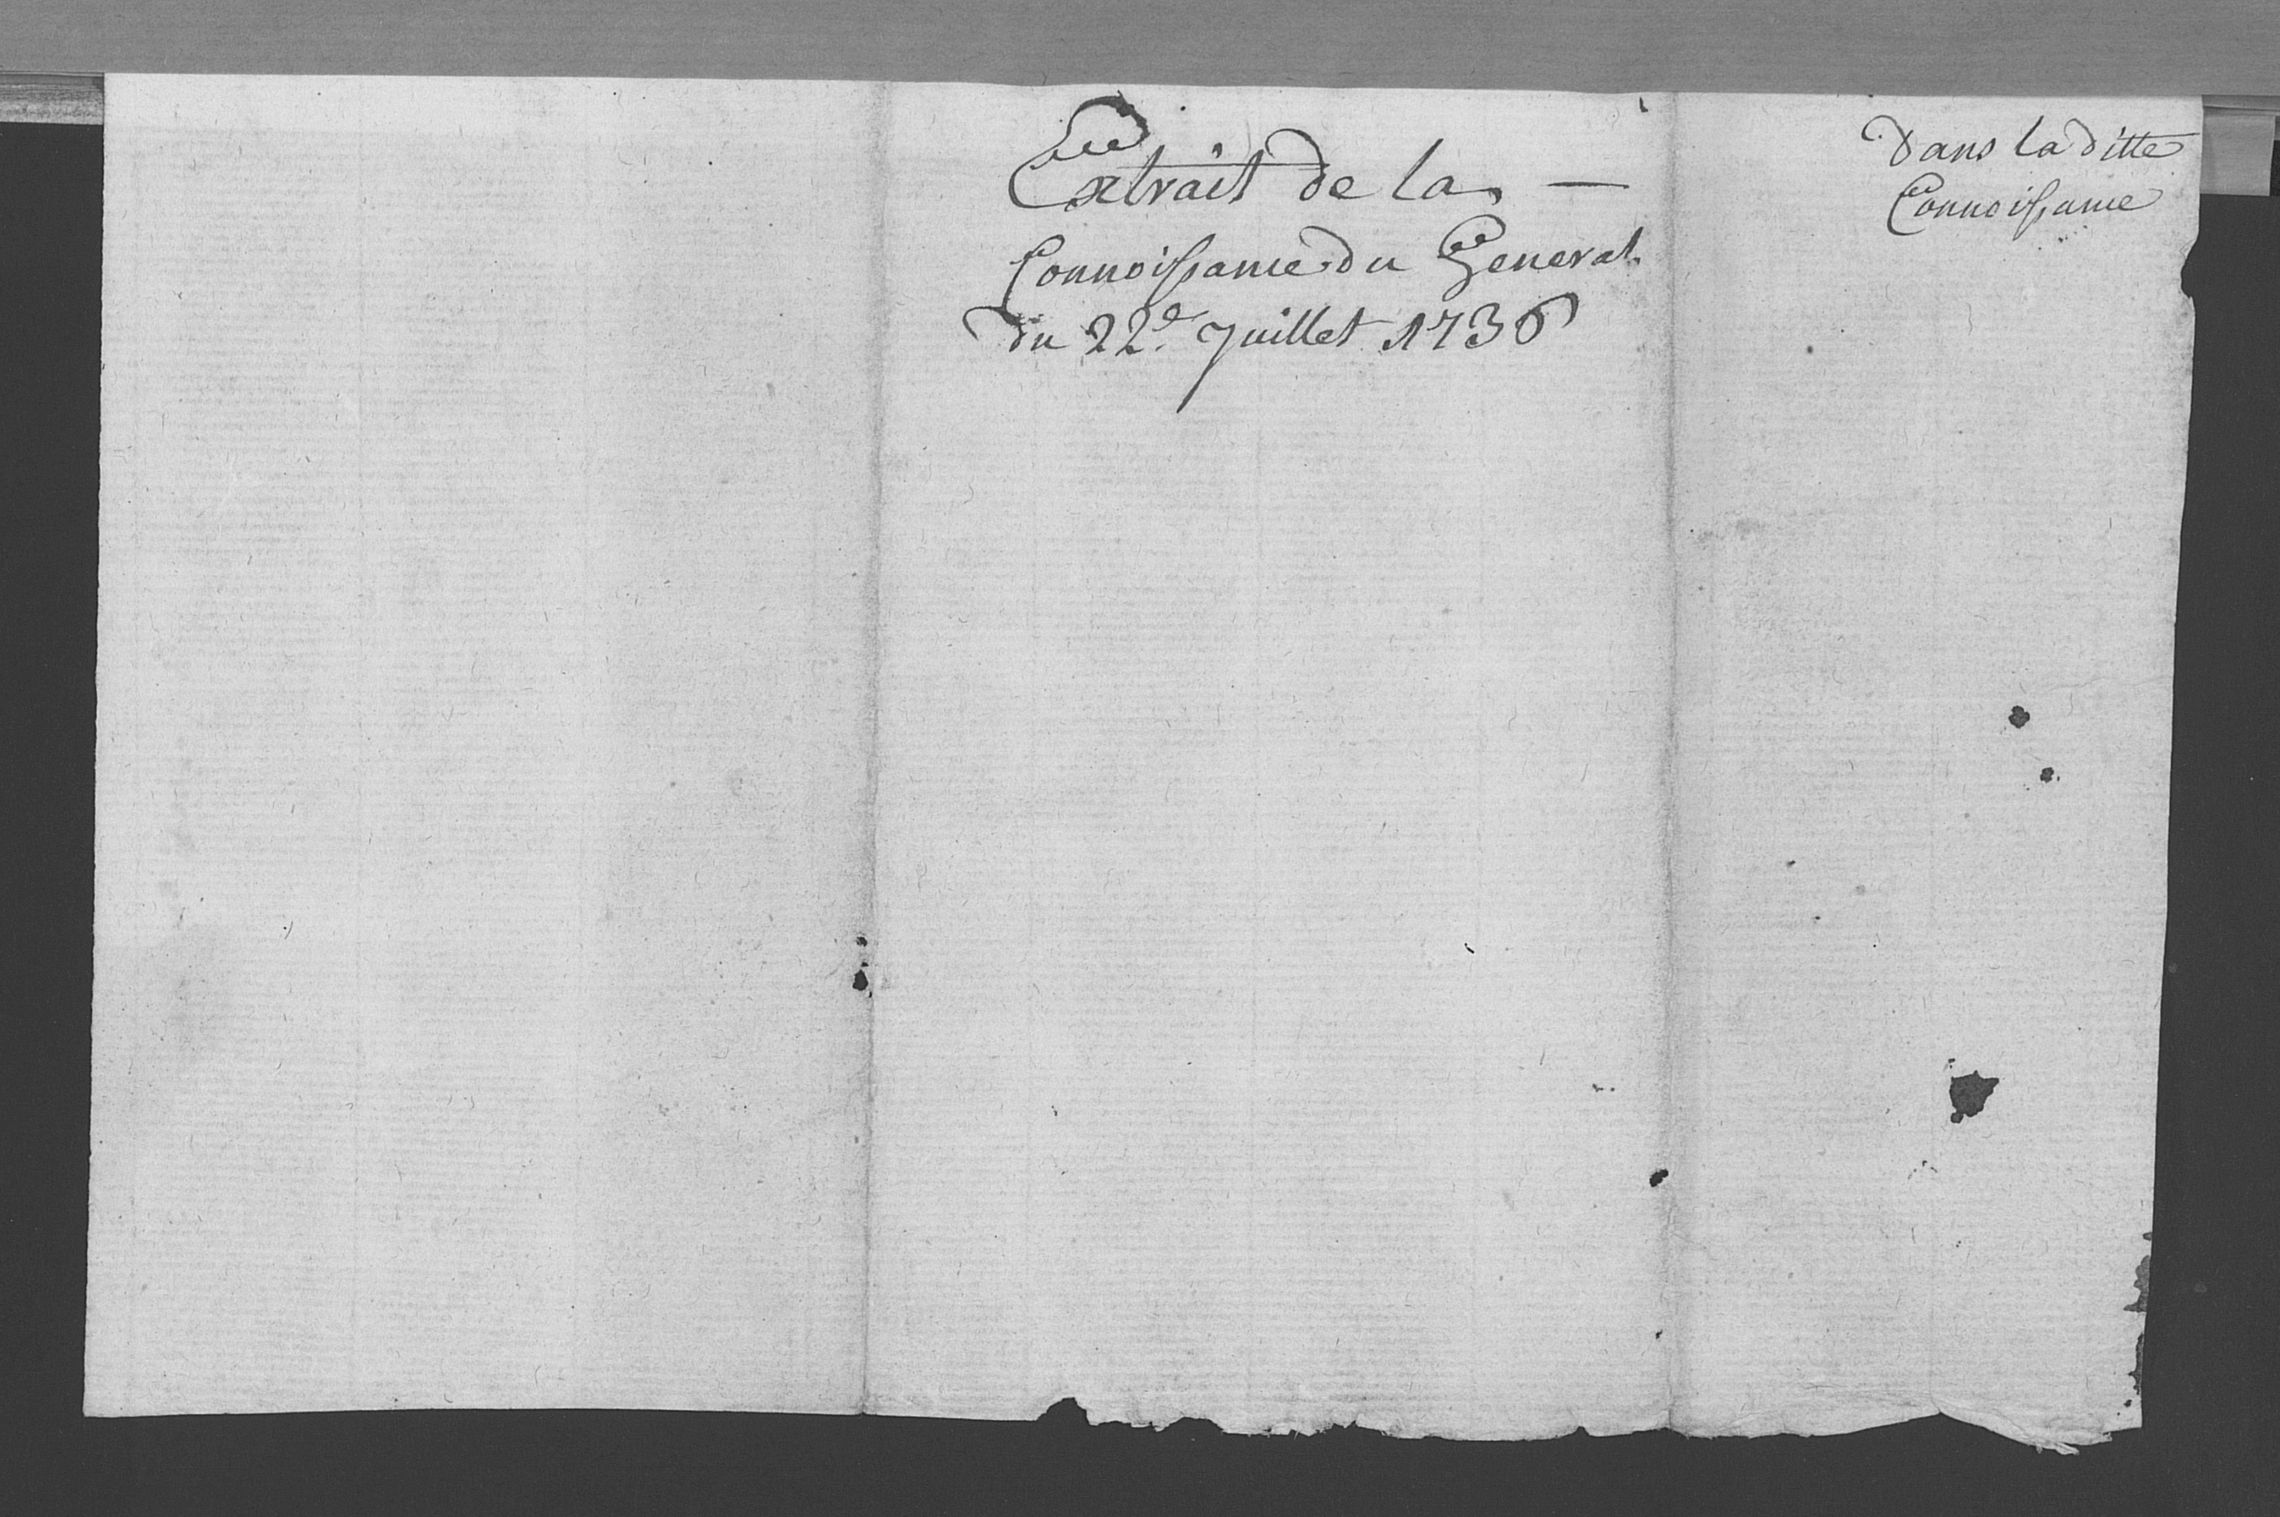 Extrait de la —
Connoissance du General.
du 22.e Juillet 1736
Dans la ditte
Connoissance